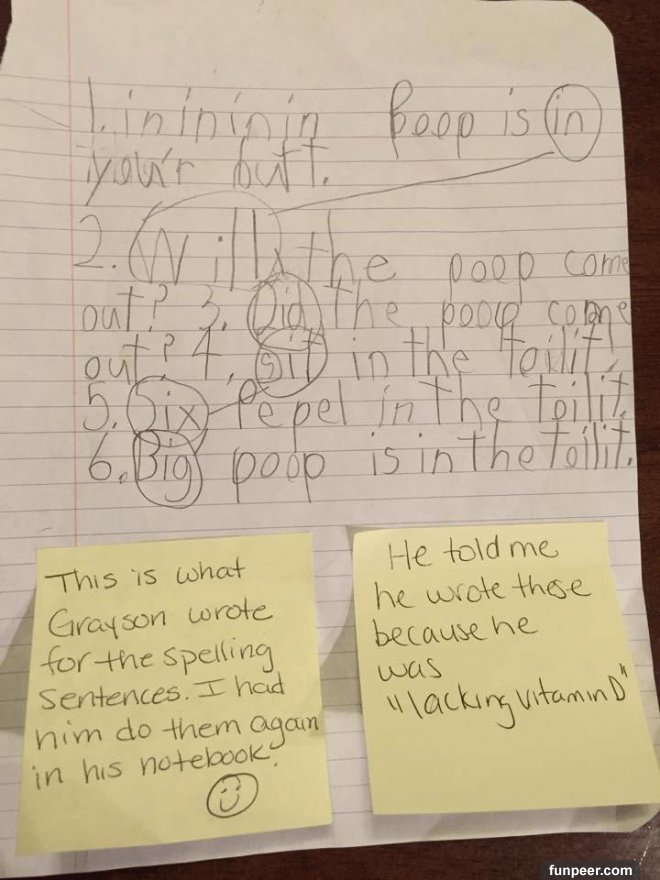 1. in in in in Poop is in
your butt.
2. Will the poop come
out? 3. Did the poop come
out? 4. sit in the toilit.
5. Six Pepel in the toilit.
6. Big poop is in the toilit.
This is what
Grayson wrote
for the spelling
sentences. I had
him do them again
in his notebook.
He told me
he wrote these
because he
was
"lacking vitamin D"
funpeer.com